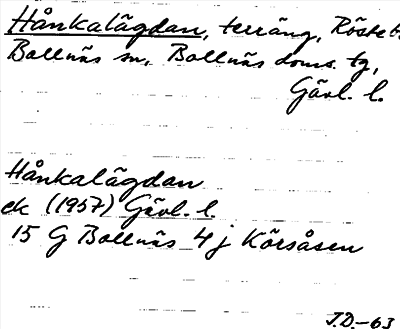 Hånkalägdan, terräng, Röste b.
Bollnäs sn, Bollnäs doms. tg,
Gävl. l.
Hånkalägdan
ek (1957) Gävl. l.
15 G Bollnäs 4 j Körsåsen
J.D.-63